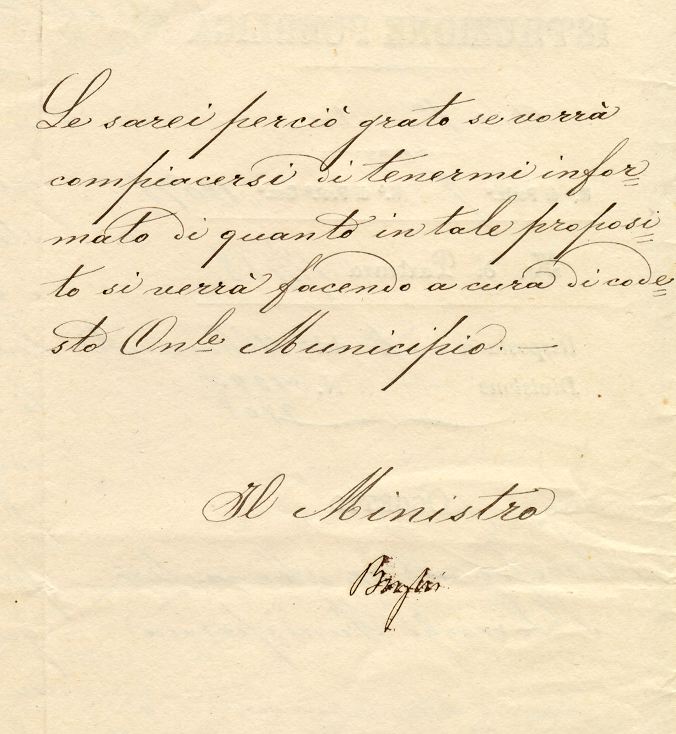 Le sarei perciò grato se vorrà
compiacersi di tenermi infor=
mato di quanto in tale proposi=
to si verrà facendo a cura di code=
sto On.le Municipio. —
Il Ministro